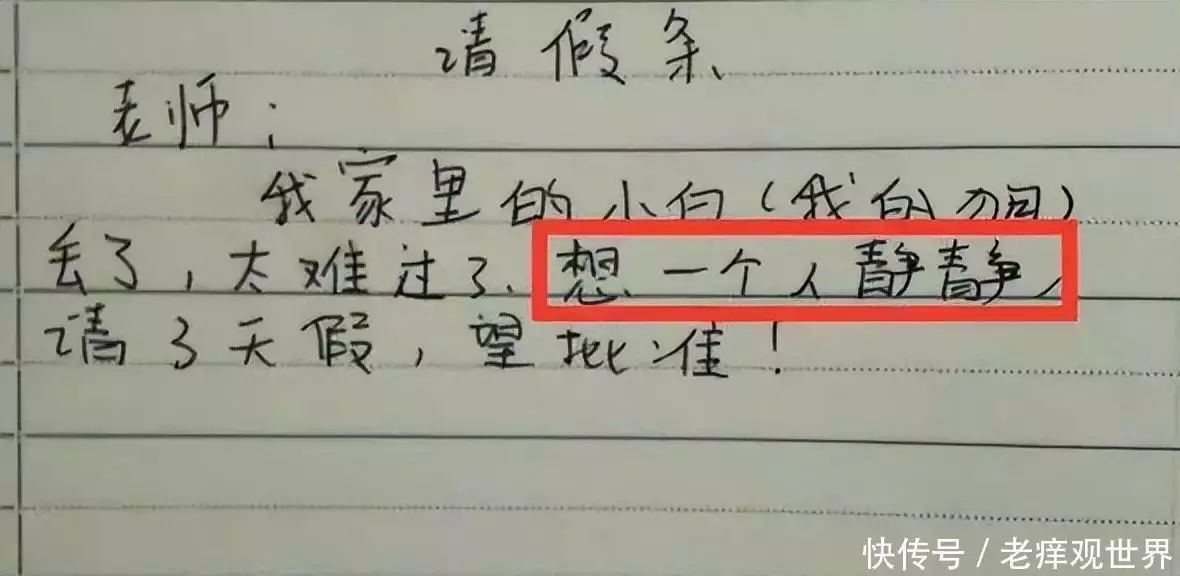 请假条
老师：
我家里的小白（我的狗）
丢了，太难过了、想一个人静静，
请3天假，望批准！
快传号／老痒观世界